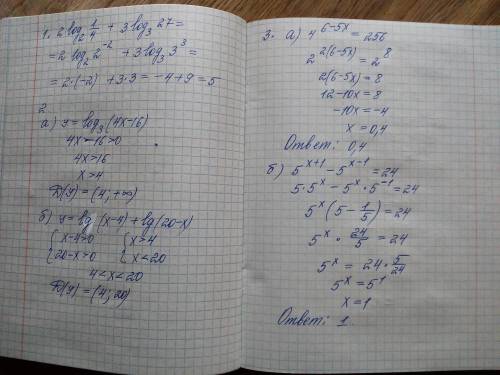 1. 2 log₂ 1/4 + 3 log₃ 27 =
= 2 log₂ 2⁻² + 3 log₃ 3³ =
= 2·(-2) + 3·3 = -4+9 = 5
2
а) y = log₃ (4x-16)
4x-16>0
4x>16
x>4
D(y) = (4; +∞)
б) y = lg (x-4) + lg (20-x)
{ x-4>0 { x>4
{ 20-x>0 { x<20
4<x<20
D(y) = (4; 20)
3. а) 4^(6-5x) = 256
2^(2(6-5x)) = 2⁸
2(6-5x) = 8
12-10x = 8
-10x = -4
x = 0,4
Ответ: 0,4
б) 5^(x+1) - 5^(x-1) = 24
5·5^x - 5^x·5⁻¹ = 24
5^x (5 - 1/5) = 24
5^x · 24/5 = 24
5^x = 24 · 5/24
5^x = 5¹
x = 1
Ответ: 1